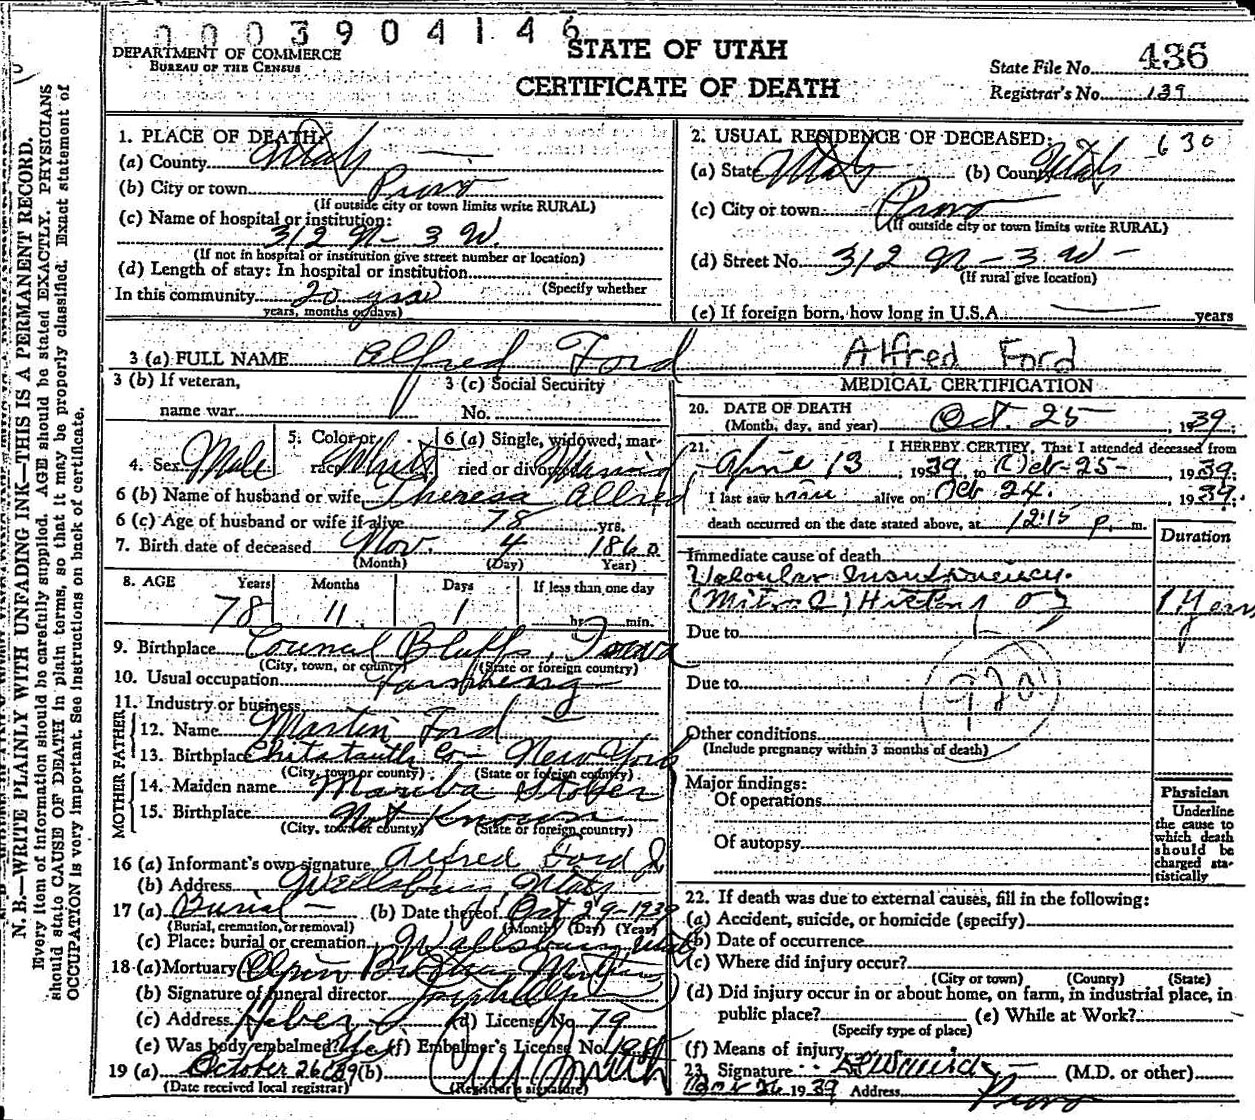 0003904146
STATE OF UTAH
CERTIFICATE OF DEATH
DEPARTMENT OF COMMERCE
BUREAU OF THE CENSUS
State File No. 436
Registrar's No. 139
N. B.—WRITE PLAINLY WITH UNFADING INK—THIS IS A PERMANENT RECORD.
Every item of information should be carefully supplied. AGE should be stated EXACTLY. PHYSICIANS
should state CAUSE OF DEATH in plain terms, so that it may be properly classified. Exact statement of
OCCUPATION is very important. See instructions on back of certificate.
1. PLACE OF DEATH:
(a) County Utah
(b) City or town Provo
(If outside city or town limits write RURAL)
(c) Name of hospital or institution:
312 N - 3 W.
(If not in hospital or institution give street number or location)
(d) Length of stay: In hospital or institution
(Specify whether
In this community 20 yrs
years, months or days)
2. USUAL RESIDENCE OF DECEASED: 630
(a) State Utah (b) County Utah
(c) City or town Provo
(If outside city or town limits write RURAL)
(d) Street No. 312 N - 3 W -
(If rural give location)
(e) If foreign born, how long in U.S.A. years
3 (a) FULL NAME Alfred Ford Alfred Ford
3 (b) If veteran,
name war
3 (c) Social Security
No.
4. Sex Male
5. Color or
race White
6 (a) Single, widowed, mar-
ried or divorced Married
6 (b) Name of husband or wife Theresa Allred
6 (c) Age of husband or wife if alive 78 yrs.
7. Birth date of deceased Nov. 4 1860
(Month) (Day) Year)
8. AGE Years Months Days If less than one day
78 11 1 hr. min.
9. Birthplace Council Bluffs, Iowa
(City, town, or county) (State or foreign country)
10. Usual occupation
11. Industry or business
FATHER
12. Name Martin Ford
13. Birthplace Co- New York
(City, town or county) (State or foreign country)
MOTHER
14. Maiden name
15. Birthplace Not Known
(City, town or county) (State or foreign country)
16 (a) Informant's own signature Alfred Ford Jr
(b) Address Utah
17 (a) Burial (b) Date thereof Oct 29-1939
(Burial, cremation, or removal) (Month) (Day) (Year)
(c) Place: burial or cremation Wallsburg, Utah
18 (a) Mortuary
(b) Signature of funeral director
(c) Address Heber (d) License No. 79
(e) Was body embalmed? (f) Embalmer's License No.
19 (a) October 26 1939 (b)
(Date received local registrar) (Registrar's signature)
MEDICAL CERTIFICATION
20. DATE OF DEATH
(Month, day, and year) Oct. 25, 1939.
21. I HEREBY CERTIFY, That I attended deceased from
April 13, 1939, to Oct-25-, 1939.
I last saw him alive on Oct 24. 1939.
death occurred on the date stated above, at 12:15 p. m.
Immediate cause of death Duration
Valvular Insufficiency.
(Mitral) 1 Year
Due to
Due to
Other conditions
(Include pregnancy within 3 months of death)
Major findings:
Of operations
Of autopsy
Physician
Underline
the cause to
which death
should be
charged sta-
tistically
22. If death was due to external causes, fill in the following:
(a) Accident, suicide, or homicide (specify)
(b) Date of occurrence
(c) Where did injury occur?
(City or town) (County) (State)
(d) Did injury occur in or about home, on farm, in industrial place, in
public place? (e) While at Work?
(Specify type of place)
(f) Means of injury
23. Signature (M.D. or other)
26 1939 Address Provo